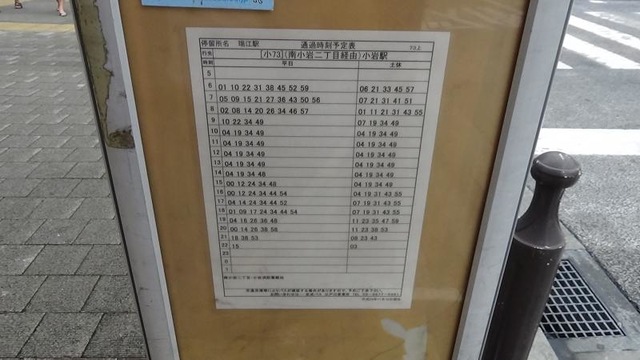 停留所名 瑞江駅 通過時刻予定表
行先 [小73](南小岩二丁目経由)小岩駅
時刻 平日 土休
5
6 01 10 22 31 38 45 52 59 06 21 33 45 57
7 05 09 15 21 27 36 43 50 56 07 21 31 41 51
8 02 08 14 20 26 34 46 57 01 11 21 31 43 55
9 10 22 34 49 07 19 34 49
10 04 19 34 49 04 19 34 49
11 04 19 34 49 04 19 34 49
12 04 19 34 49 04 19 34 49
13 04 19 34 49 04 19 34 49
14 04 19 34 48 04 19 34 49
15 00 12 24 34 48 04 19 34 49
16 00 12 24 34 44 54 04 19 31 43 55
17 04 14 24 34 44 52 07 19 31 43 55
18 01 09 17 24 34 44 54 07 19 31 43 55
19 04 16 26 36 48 11 23 35 47 59
20 00 14 26 38 58 11 23 38 53
21 18 38 53 08 23 43
22 15 03
23
0
1